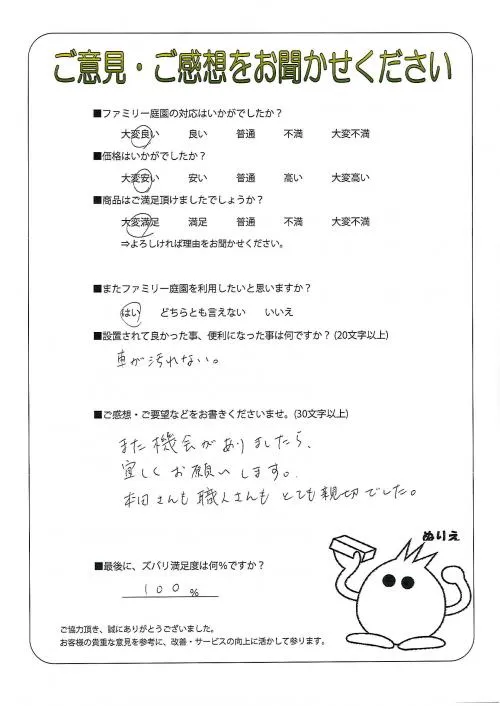 ご意見・ご感想をお聞かせください
■ファミリー庭園の対応はいかがでしたか？
大変良い 良い 普通 不満 大変不満
■価格はいかがでしたか？
大変安い 安い 普通 高い 大変高い
■商品はご満足頂けましたでしょうか？
大変満足 満足 普通 不満 大変不満
⇒よろしければ理由をお聞かせください。
■またファミリー庭園を利用したいと思いますか？
はい どちらとも言えない いいえ
■設置されて良かった事、便利になった事は何ですか？(20文字以上)
車が汚れない。
■ご感想・ご要望などをお書きくださいませ。(30文字以上)
また機会がありましたら、
宜しくお願いします。
本田さんも職人さんもとても親切でした。
ぬりえ
■最後に、ズバリ満足度は何％ですか？
100％
ご協力頂き、誠にありがとうございました。
お客様の貴重な意見を参考に、改善・サービスの向上に活かして参ります。